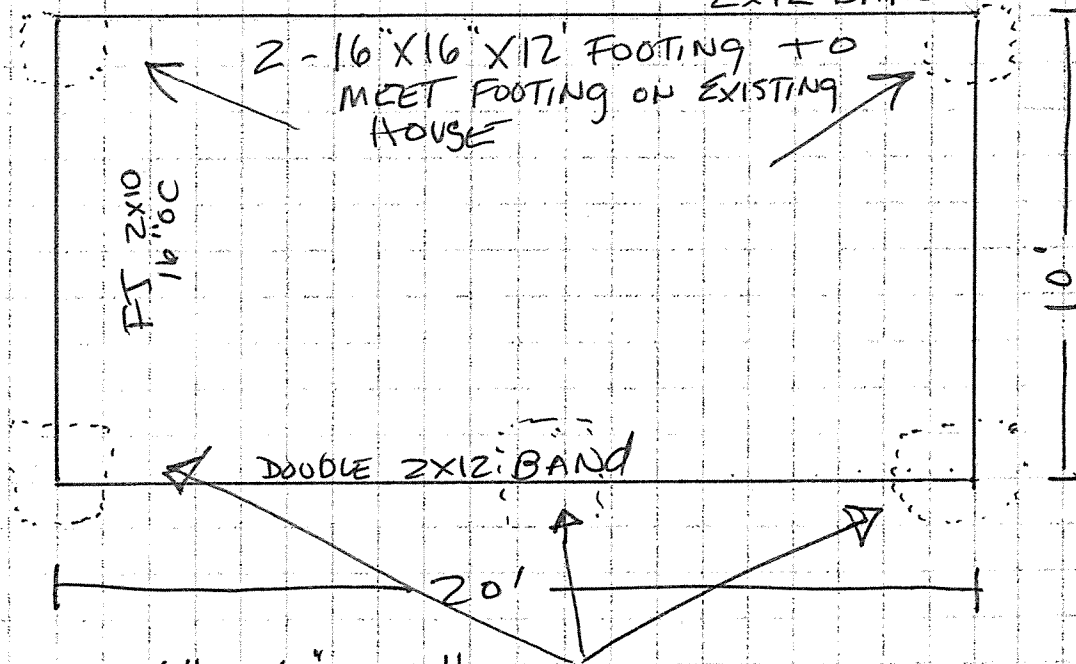 2X12
2-16"X16"X12' FOOTING TO
MEET FOOTING ON EXISTING
HOUSE
FJ 2X10
16"OC
10'
DOUBLE 2X12 BAND
20'